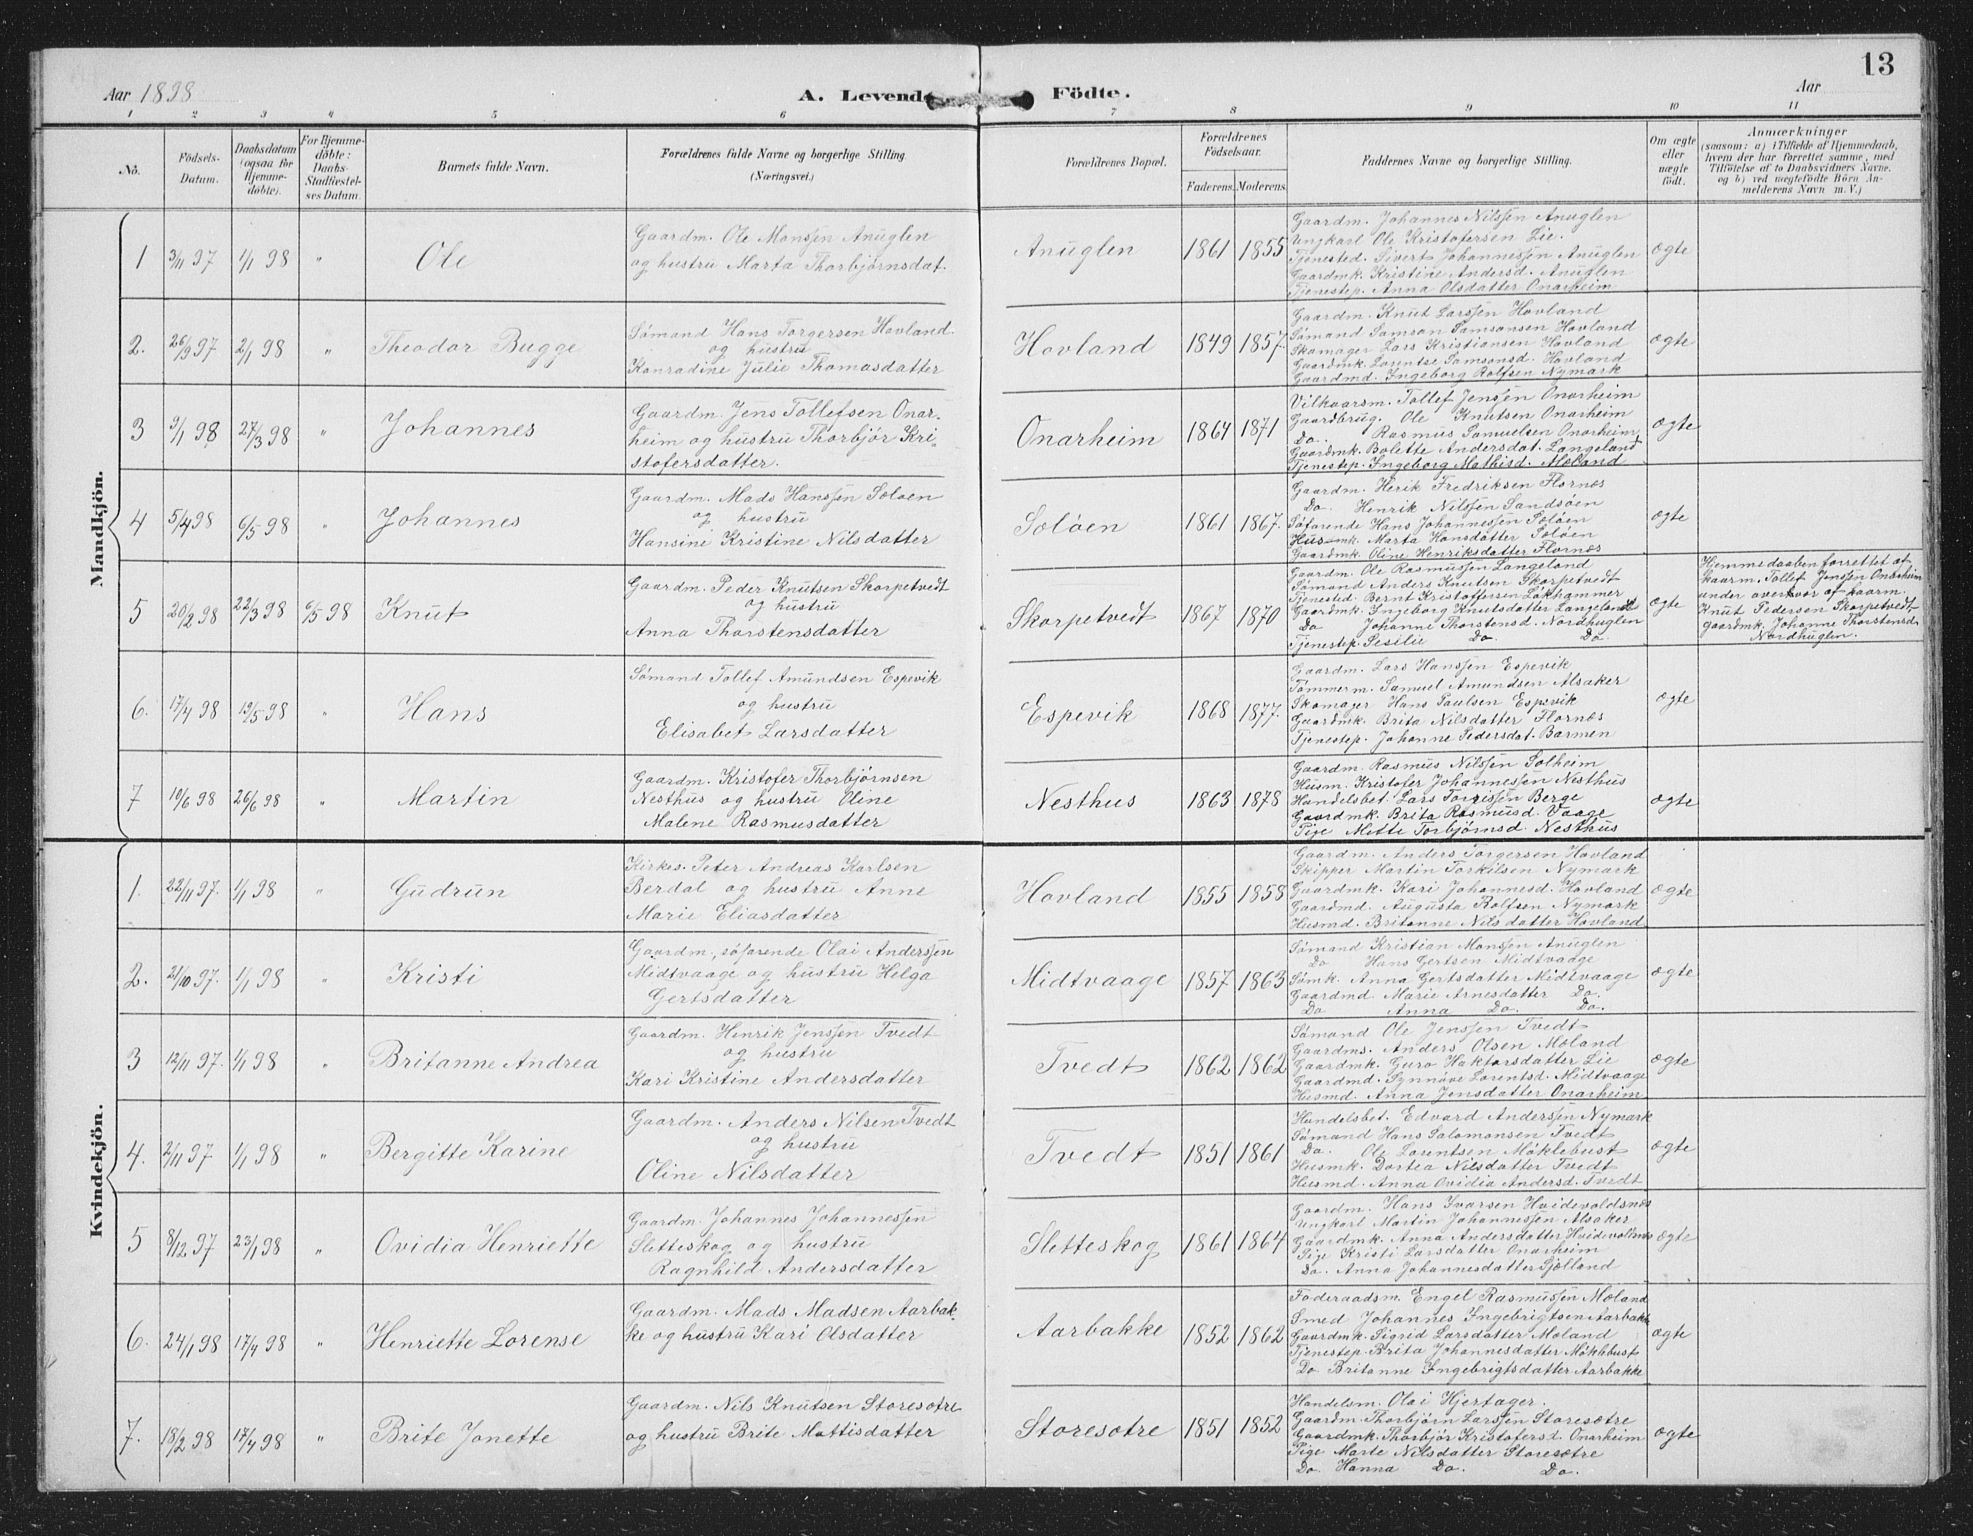 13
Aar 1898
A. Levende Födte.
Aar
1 2 3 4 5 6 7 8 9 10 11
No.
Födsels-Datum.
Daabsdatum (ogsaa for Hjemme-døbte).
For Hjemme-døbte: Daabs-Stadfæstel-ses Datum.
Barnets fulde Navn.
Forældrenes fulde Navne og borgerlige Stilling.
(Næringsvei.)
Forældrenes Bopæl.
Forældrenes Födselsaar.
Faderens. Moderens.
Faddernes Navne og borgerlige Stilling.
Om ægte eller uægte födt.
Anmærkninger
(saasom: a) i Tilfælde af Hjemmedaab,
hvem der har forrettet samme, med
Tilföielse af to Daabsvidners Navne.
og b) ved uægtefödte Börn An-
melderens Navn m. V.)
Mandkjön.
1 3/11 97 1/1 98 " Ole
Gaardm. Ole Monssen Anuglen
og hustru Marta Thorbjørnsdat.
Anuglen 1861 1855
Gaardm. Johannes Nilssen Anuglen
Ungkarl Ole Kristofersen Lie.
Tjenested. Sivert Johannessen Anuglen
Gaardmk. Kristine Andersd. Anuglen
Tjenestep. Anna Olsdatter Onarheim
ægte
2. 26/9 97 2/1 98 " Theodor Bugge
Sømand Hans Torgersen Hovland
og hustru
Konradine Julie Thomasdatter
Hovland 1849 1857.
Gaardm. Knut Larssen Hovland
Sømand Samson Samsonsen Hovland
Skomager Lars Kristiansen Hovland
Gaardmk. Lorentse Samsonsd. Hovland
Gaardmd. Ingeborg Rolfsen Nymark
ægte
3 9/1 98 27/3 98 " Johannes
Gaardm. Jens Tollefsen Onar-
heim og hustru Thorbjør Kri-
stofersdatter.
Onarheim 1864 1871
Vilkaarsm. Tollef Jenssen Onarheim
Gaardbrug. Ole Knutsen Onarheim
Do. Rasmus Samuelsen Onarheim
Gaardmk. Bolette Andersdat. Langeland
Tjenestep. Ingeborg Mathisd. Moland
ægte
4 5/4 98 6/5 98 " Johannes
Gaardm. Mads Hanssen Soløen
og hustru
Hansine Kristine Nilsdatter
Soløen 1861 1867.
Gaardm. Herik Fredriksen Flornæs
Do. Henrik Nilssen Sandsøen
Søfarende Hans Johannessen Soløen
Husmk. Marta Hansdatter Soløen
Gaardmk. Oline Henriksdatter Flornæs
ægte
5 20/2 98 22/3 98 6/5 98 Knut
Gaardm. Peder Knutsen Skorpetvedt
og hustru
Anna Thorstensdatter
Skorpetvedt 1867 1870
Gaardm. Ole Rasmussen Langeland
Sømand Anders Knutsen Skorpetvedt
Tjenested. Bernt Kristoffersen Løkhammer
Gaardmk. Ingeborg Knutsdatter Langeland
Do Johanne Thorstensd. Nordhuglen
Tjenestep. Sesilie Do. Do.
ægte
Hjemmedaaben forrettet af
kaarm. Tollef Jenssen Onarheim
under overvær af kaarm.
Knut Pedersen Skorpetvedt
Gaardmk. Johanne Thorstensd.
Nordhuglen.
6. 17/4 98 19/5 98 " Hans
Sømand Tollef Amundsen Espevik
og hustru
Elisabet Larsdatter
Espevik 1868 1877.
Gaardm. Lars Hanssen Espevik
Tømmerm. Samuel Amundsen Alsaker
Skomager Hans Paulsen Espevik
Gaardmk. Brita Nilsdatter Flornæs
Tjenestep. Johanne Pedersdat. Barmen
ægte
7 10/6 98 26/6 98 " Martin
Gaardm. Kristofer Thorbjørnsen
Nesthus og hustru Oline
Malene Rasmusdatter
Nesthus 1863 1878
Gaardm. Rasmus Nilssen Solheim
Husm. Kristofer Johannessen Nesthus
Handelsbet. Lars Torrissen Berge
Gaardmk. Brita Rasmusd. Vaage
Pige Mette Torbjørnsd. Nesthus
ægte
Kvindekjön.
1. 22/11 97. 1/1 98 " Gudrun
Kirkes. Peter Andreas Karlsen
Berdal og hustru Anne
Marie Eliasdatter
Hovland 1855 1858
Gaardm. Anders Torgersen Hovland
Skipper Martin Torkilsen Nymark
Gaardmk. Kari Johannesd. Hovland
Gaardmd. Augusta Rolfsen Nymark
Husmd. Britanne Nilsdatter Hovland
ægte
2. 21/10 97. 1/1 98 " Kristi
Gaardm., søfarende Olai Anderssen
Midtvaage og hustru Helga
Gertsdatter
Midtvaage 1857 1863
Sømand Kristian Monssen Anuglen
Do Hans Gertsen Midtvaage
Sømk. Anna Gertsdatter Midtvaage
Gaardmd. Marie Arnesdatter Do.
Do Anna Do. Do.
ægte
3 12/11 97. 1/1 98 " Britanne Andrea
Gaardm. Henrik Jenssen Tvedt
og hustru
Kari Kristine Andersdatter
Tvedt 1862 1862
Sømand Ole Jenssen Tvedt
Gaardms. Anders Olsen Moland
Gaardmk. Guro Haktorsdatter Lie
Gaardmd. Synnøve Lorentsd. Midtvaage
Husmd. Anna Jensdatter Onarheim
ægte
4. 2/11 97 1/1 98 " Bergitte Karine
Gaardm. Anders Nilsen Tvedt
og hustru
Oline Nilsdatter
Tvedt 1851 1861
Handelsbet. Edvard Anderssen Nymark
Sømand Hans Salomonsen Tvedt
Do. Ole Lorentsen Møklebust
Husmk. Dortea Nilsdatter Tvedt
Husmd. Anna Ovidia Andersd. Tvedt
ægte
5 8/12 97 23/1 98 " Ovidia Henriette
Gaardm. Johannes Johannessen
Sletteskog og hustru
Ragnhild Andersdatter
Sletteskog 1861 1864
Gaardm. Hans Ivarsen Hvidevoldsnæs
Ungkarl Martin Johannessen Alsaker
Gaardmk. Anna Andersdatter Hvidevoldsnæs
Pige Kristi Larsdatter Onarheim
Do. Anna Johannesdatter Sjølland
ægte
6. 24/1 98 17/4 98 " Henriette Lorense
Gaardm. Mads Madsen Aarbak-
ke og hustru Kari Olsdatter
Aarbakke 1852 1862
Føderaadsm. Engel Rasmussen Moland
Smed Johannes Ingebrigtsen Aarbakke
Gaardmk. Sigrid Larsdatter Moland
Tjenestep. Brita Johannesdatter Møklebust
Do Britanne Ingebrigtsdatter Aarbakke
ægte
7. 18/2 98 17/4 98 " Brite Jonette
Gaardm. Nils Knutsen Storesøtre
og hustru Brite Mattisdatter
Storesøtre 1851 1852
Handelsm. Olai Hjertager.
Gaardm. Thorbjørn Larssen Storesøtre
Gaardmk. Thorbjør Kristofersd. Onarheim
Pige Marte Nilsdatter Storesøtre
Do Hanna Do. Do.
ægte